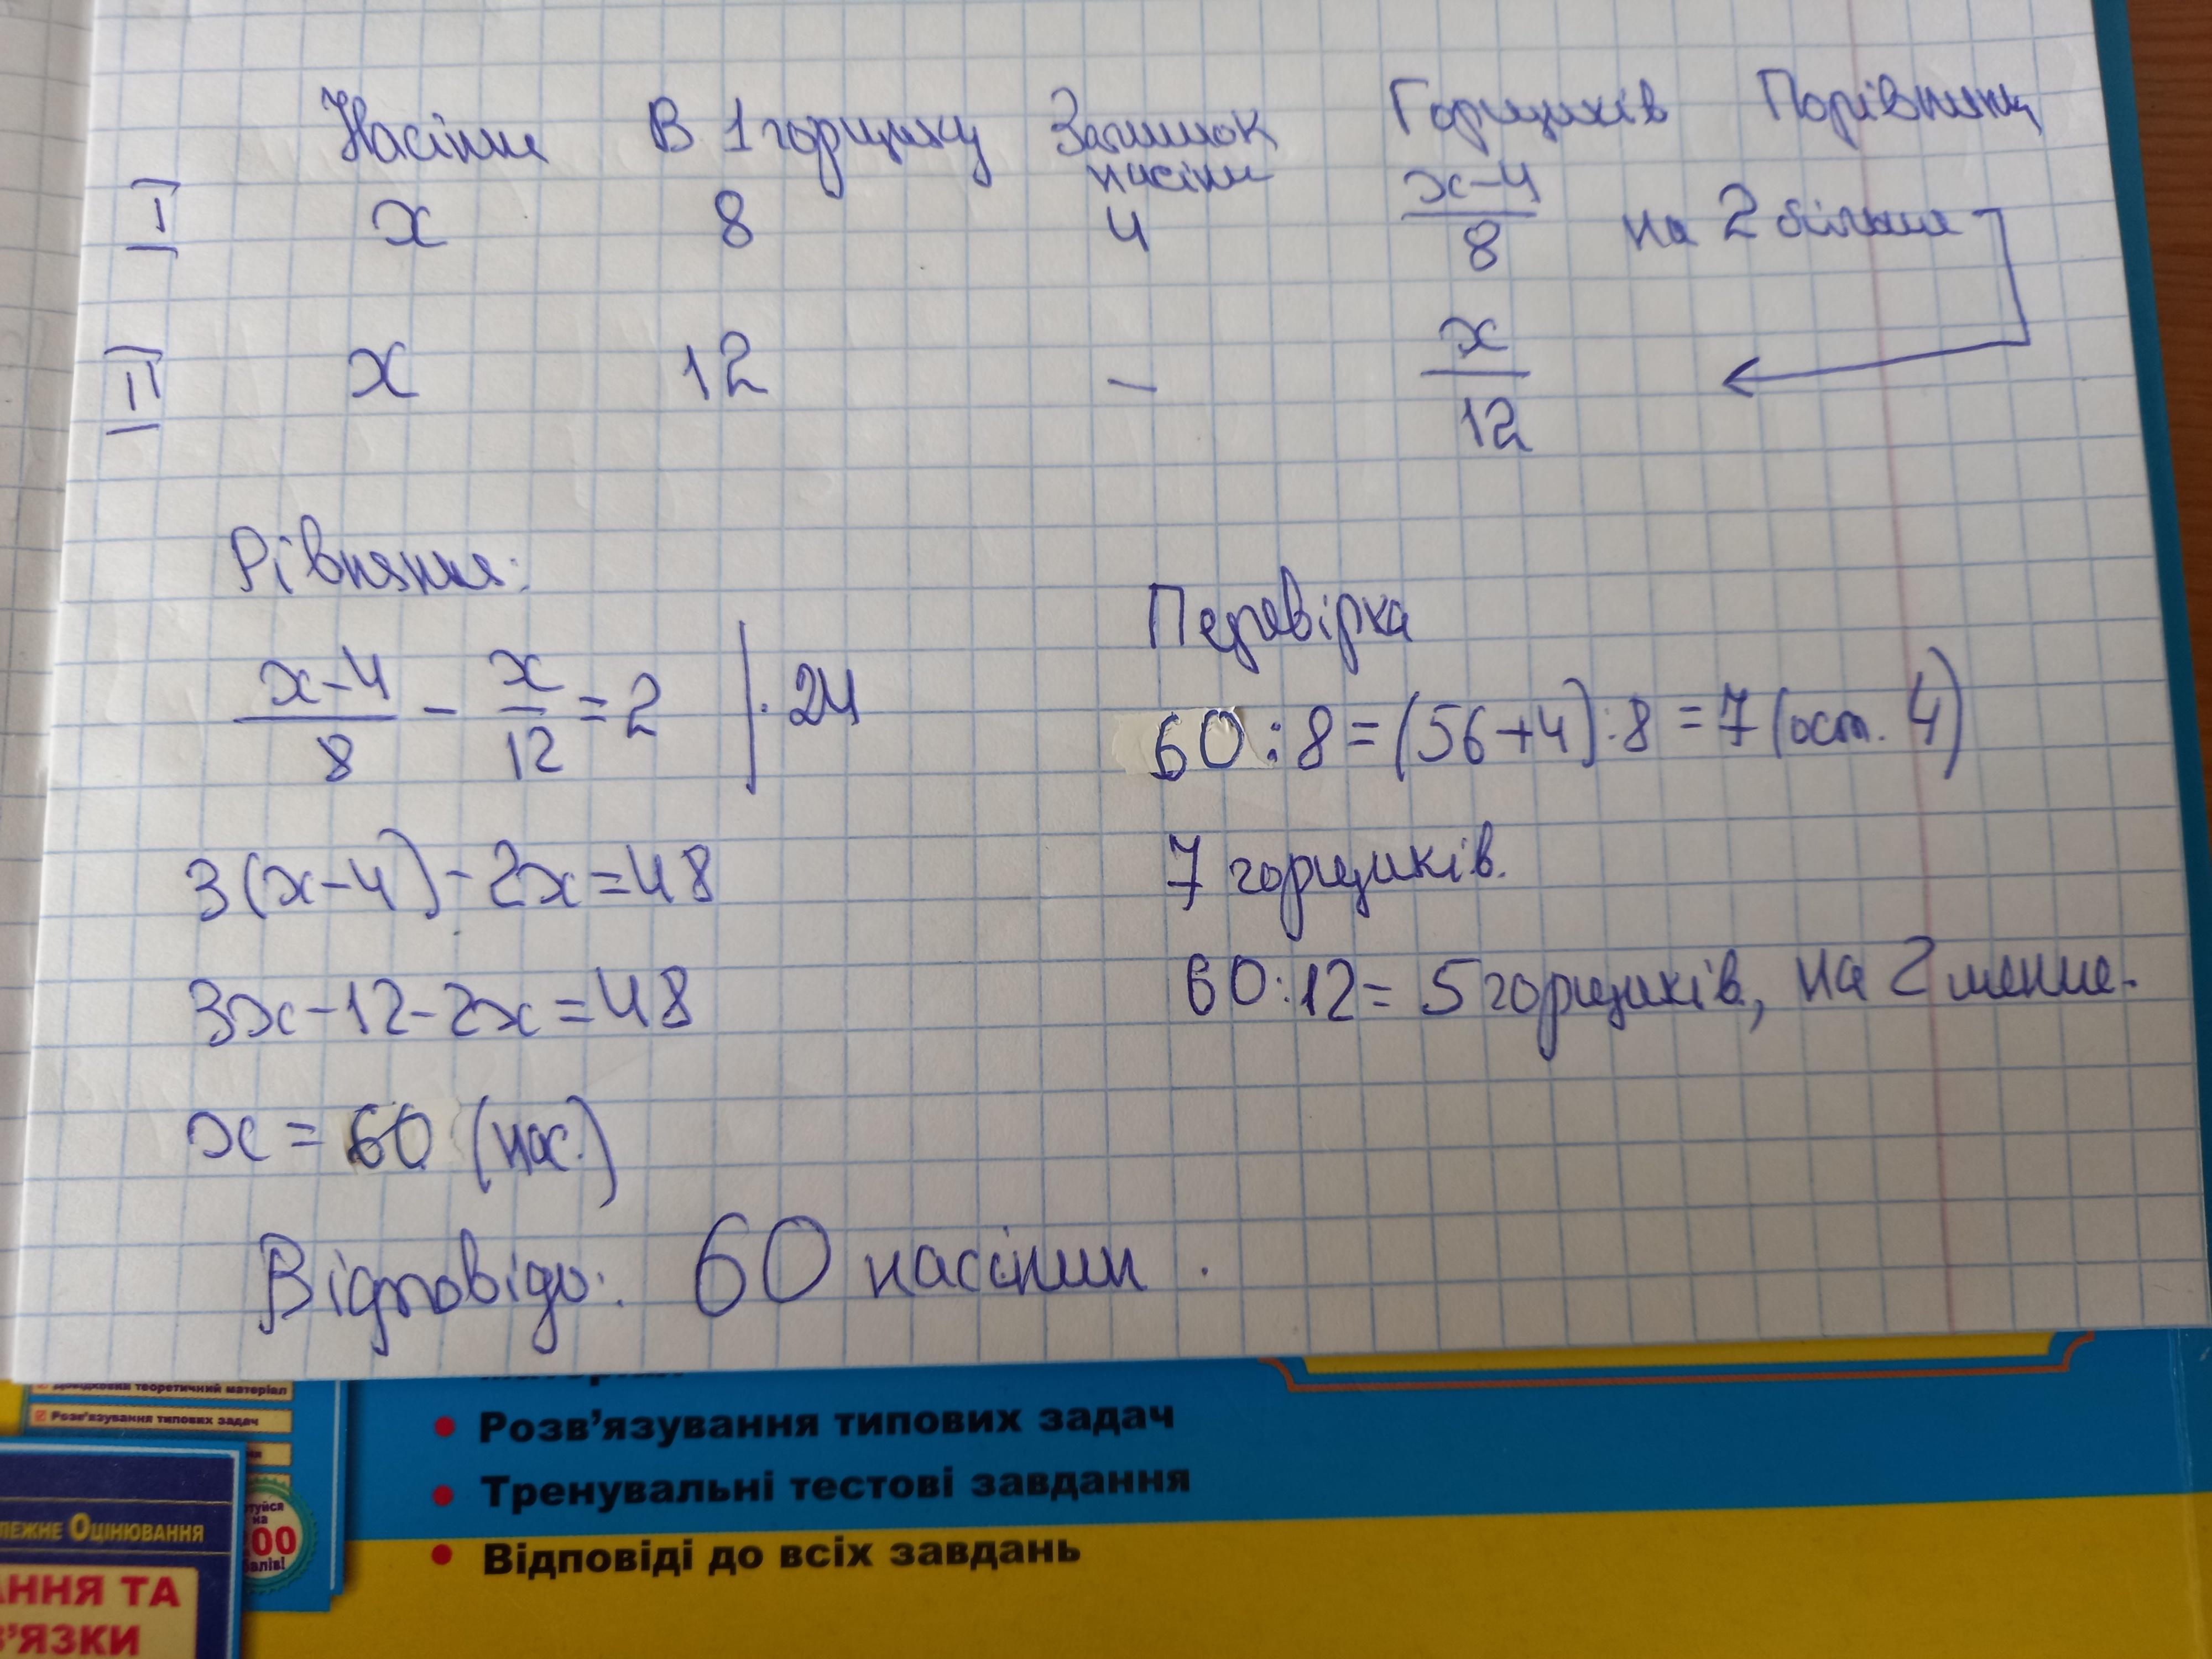 Насіння В 1 горщику Залишок насіння Горщиків Порівняння
I x 8 4 x-4/8 на 2 більше
II x 12 — x/12
Рівняння:
x-4/8 - x/12 = 2 | · 24
3(x-4)-2x=48
3x-12-2x=48
x = 60 (нас.)
Відповідь: 60 насінин.
Перевірка
60:8=(56+4):8=7(ост. 4)
7 горщиків.
60:12= 5 горщиків, на 2 менше.
довідковий теоретичний матеріал
Розв'язування типових задач
Розв'язування типових задач
Тренувальні тестові завдання
Відповіді до всіх завдань
Оцінювання